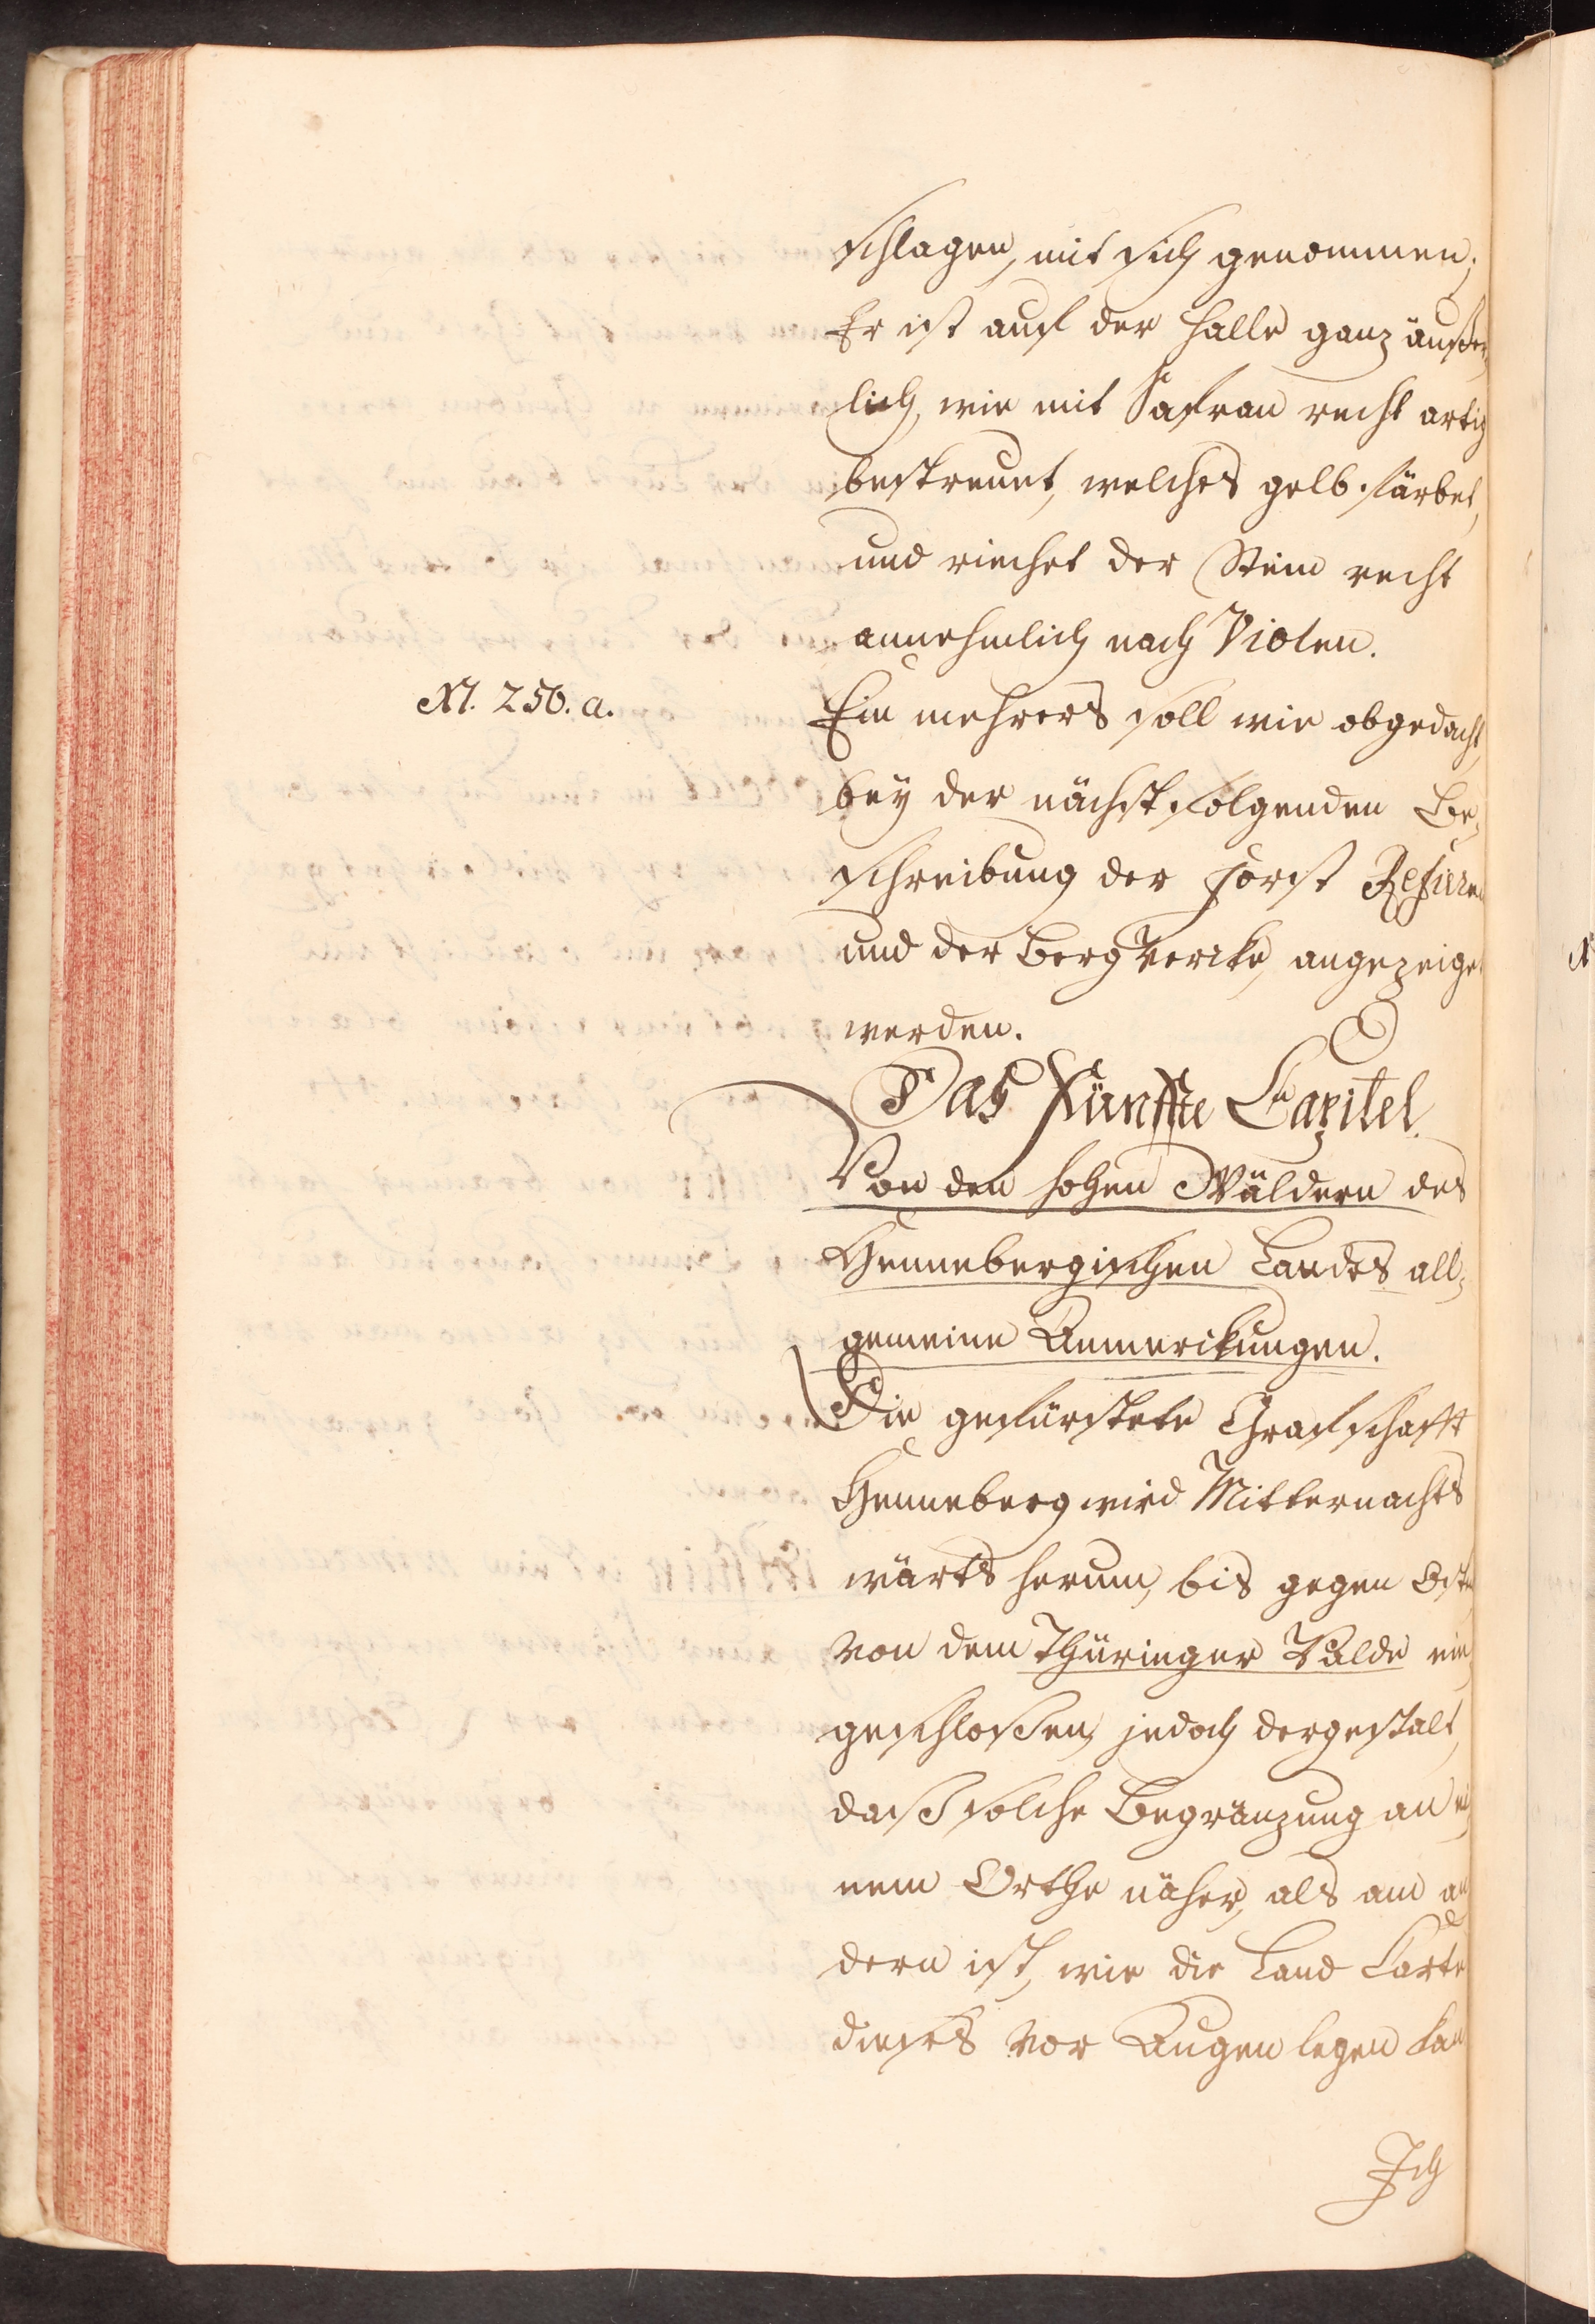 schlagen, mit sich genommen;
Er ist auf der Halle ganz äußer,
lich, wie mit Safran recht artig
bestreuet, welches gelb färbet,
und riechet der Stein recht
annehmlich nach Violen.
N. 250. a.
Ein mehrers soll wie obgedacht,
bey der nächst folgenden Be,
schreibung der Forst Refieren
und der BergWercke, angezeiget
werden.
Das Fünffte Capitel.
Von den hohen Wäldern des
Hennebergischen Landes all,
gemeine Anmerckungen.
Die gefürstete Graffschafft
Henneberg wird Mitternachts
wärts herum, bis gegen Osten
von dem Thüringer Walde ein
geschloßen, jedoch dergestalt,
daß solche Begränzung an ei,
nem Orthe näher, als am an
dern ist, wie die Land Carte
dieses vor Augen legen kan
Ich